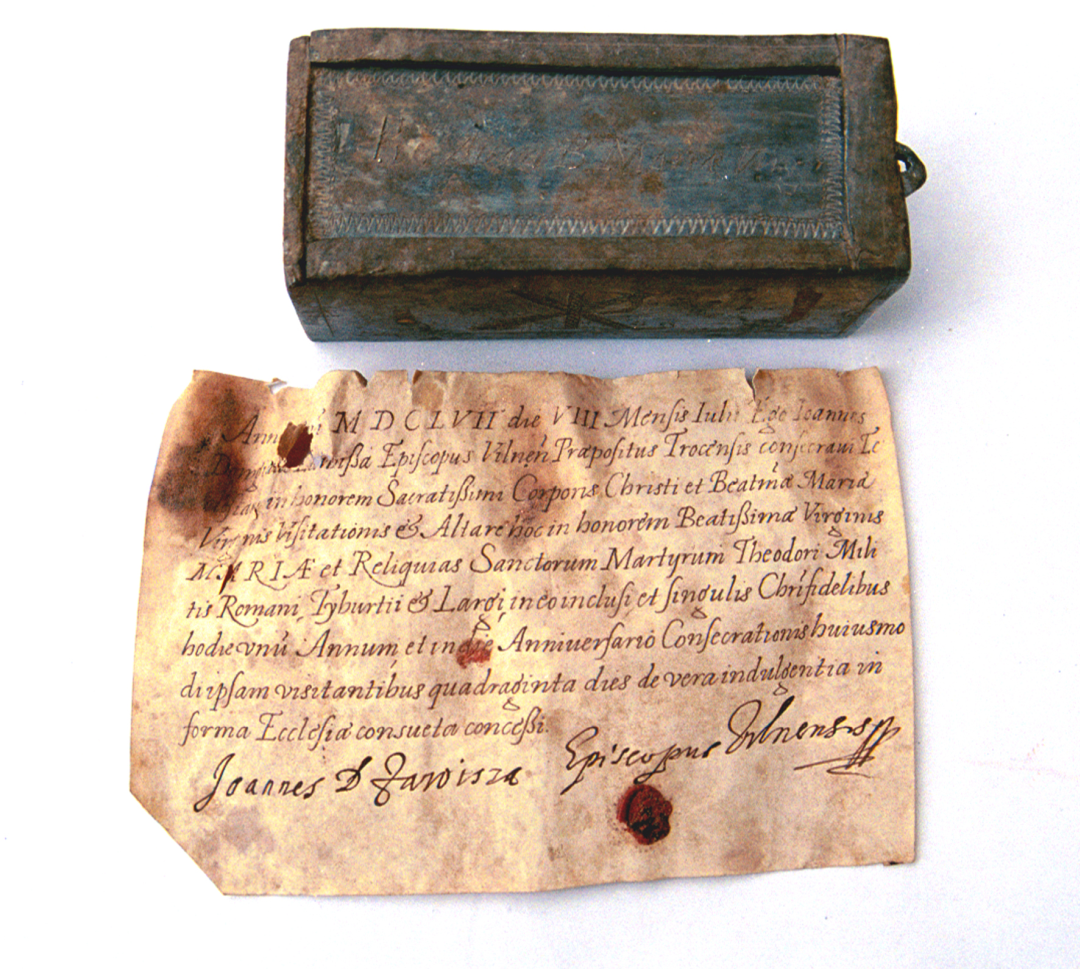 B. Mariæ
M D C L VII die VIII Mensis Iulii Ego Ioannes
Episcopus Vilnen̄ Præpositus Trocensis consecraui Ec
in honorem Sacratißimi Corporis Christi et Beatm̄æ Mariæ
Virginis Visitationis & Altare hoc in honorem Beatißimæ Virginis
MARIÆ et Reliquias Sanctorum Martyrum Theodori Mili
tis Romani, Tyburtii & Largi in eo inclusi et singulis Chrīfidelibus
hodie vnū Annum et in die Anniuersario Consecrationis huiusmo
di ipsam visitantibus quadraginta dies de vera indulgentia in
forma Ecclesiæ consueta conceßi.
Joannes D Zawisza Episcopus Vilnensis